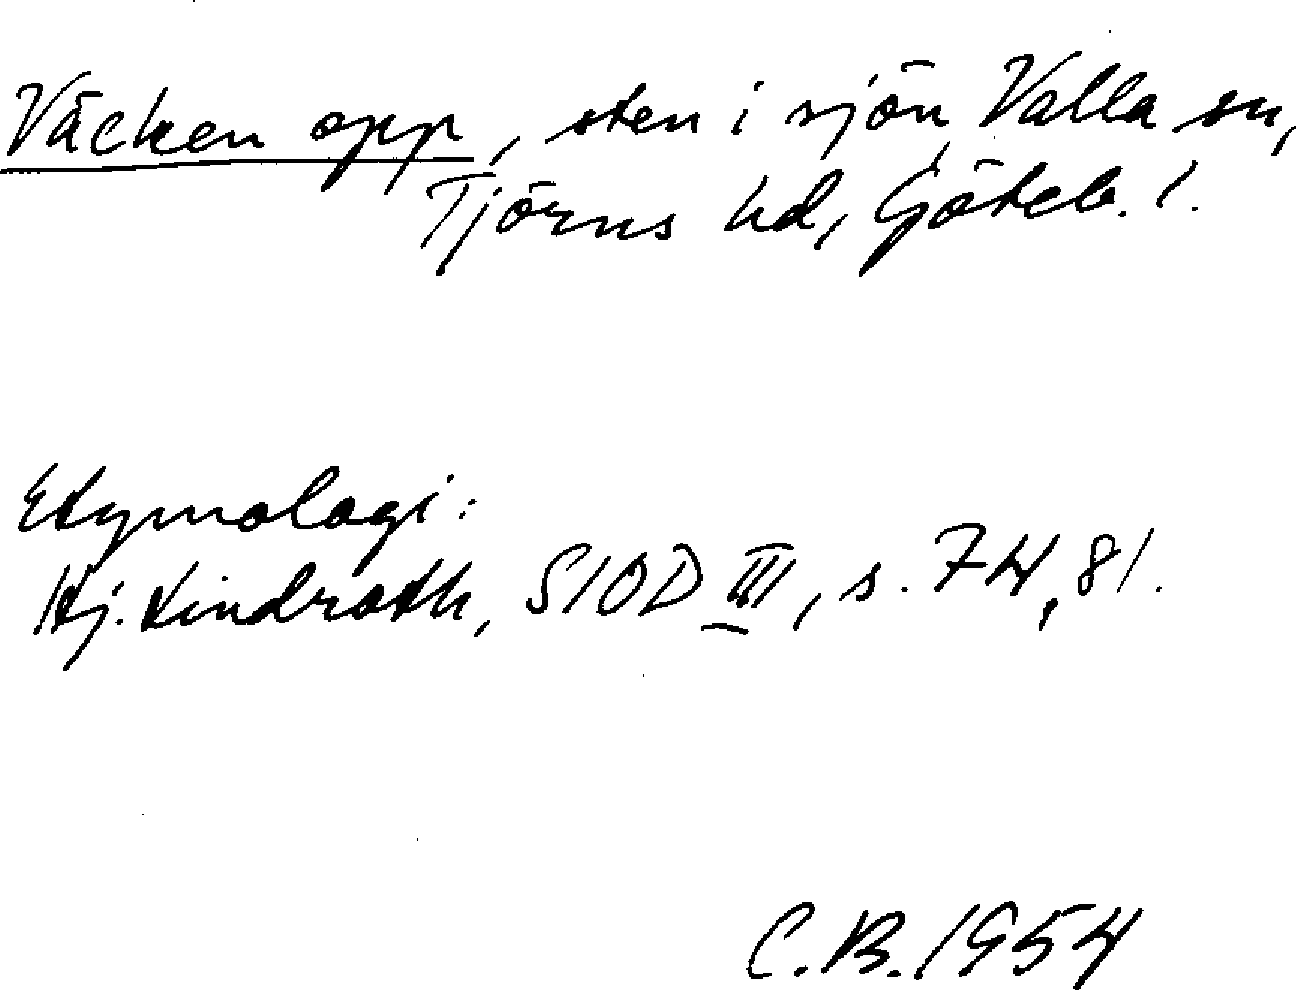 Väcken opp, sten i sjön Valla sn,
Tjörns hd, Göteb. l.
Etymologi:
Hj. Lindroth, SIOD III, s. 74, 81.
C.B. 1954